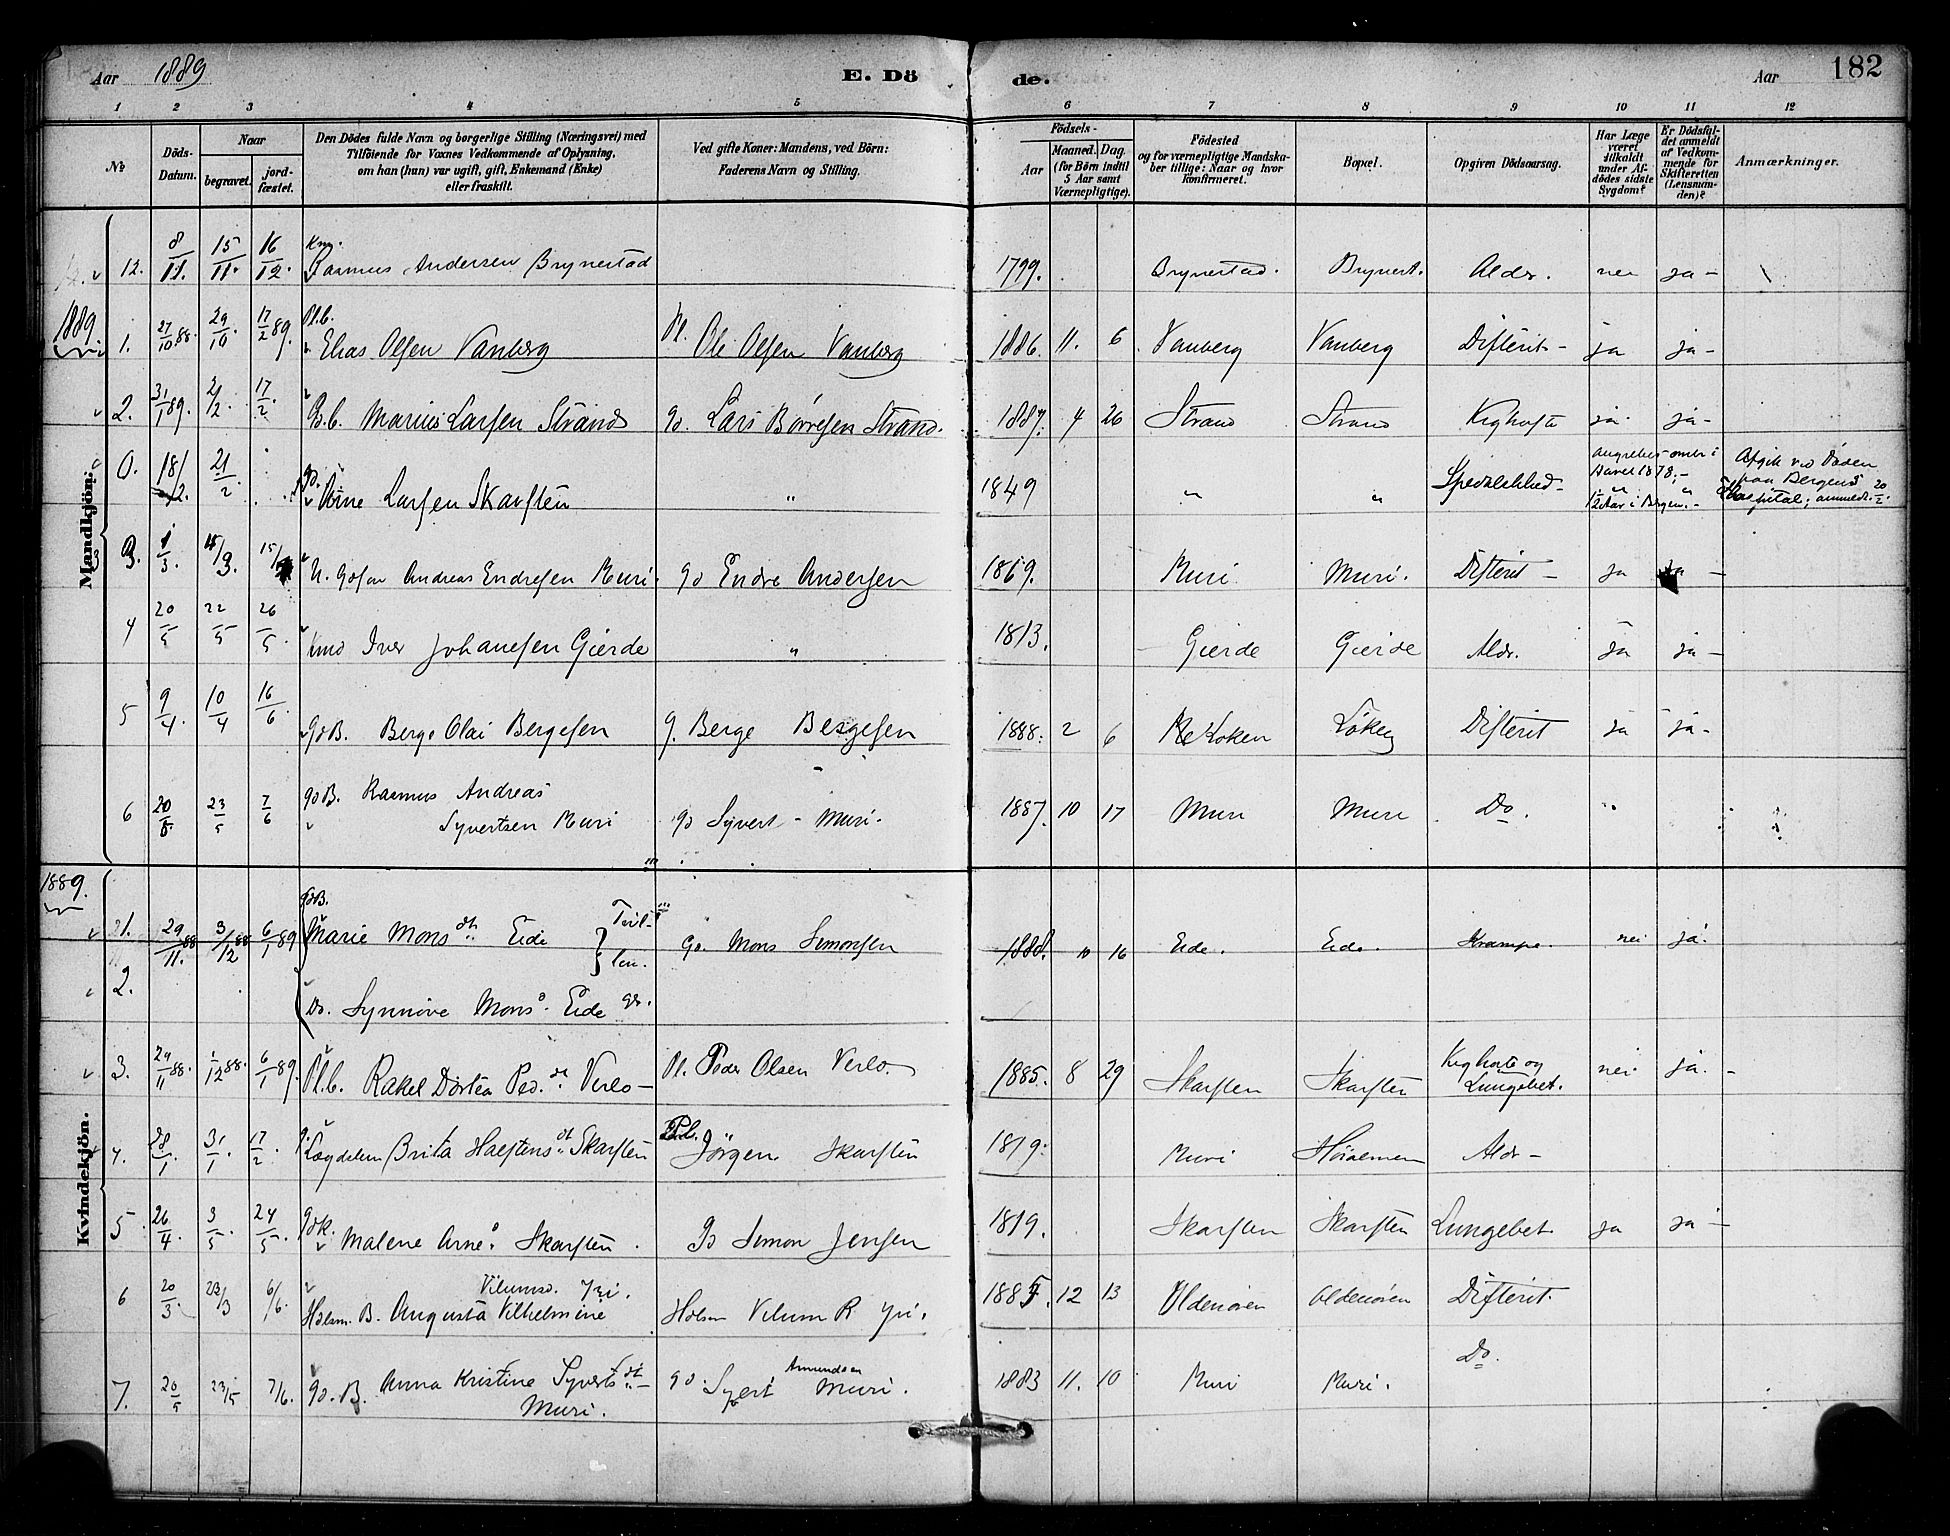 Aar 1889
E. Dö
de.
Aar 182
1 2 3 4 5 6 7 8 9 10 11 12
No
Döds-Datum.
Naar
begravet.
jordfæstet.
Den Dödes fulde Navn og borgerlige Stilling (Næringsvei) med
Tilföiende for Voxnes Vedkommende af Oplysning,
om han (hun) var ugift, gift, Enkemand (Enke)
eller fraskilt.
Ved gifte Koner: Mandens, ved Börn:
Faderens Navn og Stilling.
Födsels-
Aar
Maaned. Dag.
(for Börn indtil
5 Aar samt
Værnepligtige).
Födested
og for værnepligtige Mandska-
ber tillige: Naar og hvor
konfirmeret.
Bopæl.
Opgiven Dödsaarsag.
Har Læge
været
tilkaldt
under Af-
dödes sidste
Sygdom?
Er Dödsfal-
det anmeldt
af Vedkom-
mende for
Skifteretten
(Lensman-
den)?
Anmærkninger.
Mandkjön.
12. 8/11. 15/11. 16/12. Rasmus Andersen Brynestad 1799. Brynestad. Brynest. Aldr. nei ja -
1889
1. 27/10 88. 29/10. 17/2 89. Pl.b. Elias Olsen Vanberg Pl. Ole Olsen Vanberg 1886. 11. 6 Vanberg Vanberg Difterit - ja ja -
2. 31/1 89. 2/2. 17/2. G.b. Marius Larsen Strand G. Lars Börresen Strand. 1887. 4 26 Strand Strand Kighoste ja ja -
0. 18/2. 21/2 Arne Larsen Skarsten " 1849 " " Spedalskhed - Aaret 1878; - 12 Aar i Bergen. - Afgik ved Döden paa Bergens Hospital; anmeldt 20/2.
3. 1/3. 15/3. U. Gdsön Andreas Endresen Muri. Gd Endre Andersen 1869. Muri Muri. Difterit - ja ja -
4 20/5 22/5 26/5. Kmd Iver Johanesen Gierde " 1813. Gierde Gierde Aldr. ja ja -
5 9/4. 10/4 16/6. GdB. Berge Olai Bergesen G. Berge Bergesen 1888. 2 6 Löken Difterit ja ja -
6 23/5 7/6 GdB. Rasmus Andreas
Syvertsen Muri Gd Syvert - Muri. 1887. 10 17 Muri Muri Do.
Kvindekjön.
1889.
1. 29/11. 88 3/12 88 6/1 89 GdB. Marie Monsdt. Eide Tvil- Gd. Mons Simonsen 1888. 10 16 Eide. Eide. Krampe. nei ja.
lin.
2. Do. Synnöve Mons Eide
3. 29/11 88. 1/12 88. 6/1 89. Pl.b. Rakel Dortea Ped. dt. Verlo - Pl. Peder Olsen Verlo 1885. 8 29 Skarsten Skarsten Kighoste og Lungebet. nei. ja. -
4. 28/1 31/1. 17/2. Lægdslem Brita Halstensdt. Skarsten Jörgen Skarsten 1819. Muri Aldr -
5. 26/4. 3/5. 24/5. GdK. Malene Arne Skarsten. G Simon Jensen 1819. Skarsten Skarsten Lungebet. ja ja -
6 20/3. 6/6. Vilumsd. Yri.
Husm. B. Augusta Vilhelmine Husm Vilum R Yri. 1885. 12 13 Oldenören Oldenören Difterit.
7. 20/5 23/5 7/6. Gd. B. Anna Kristine Syvertsdt -
Muri. Gd. Syvert Amundsen Muri. 1883 11. 10 Muri Muri. Do.